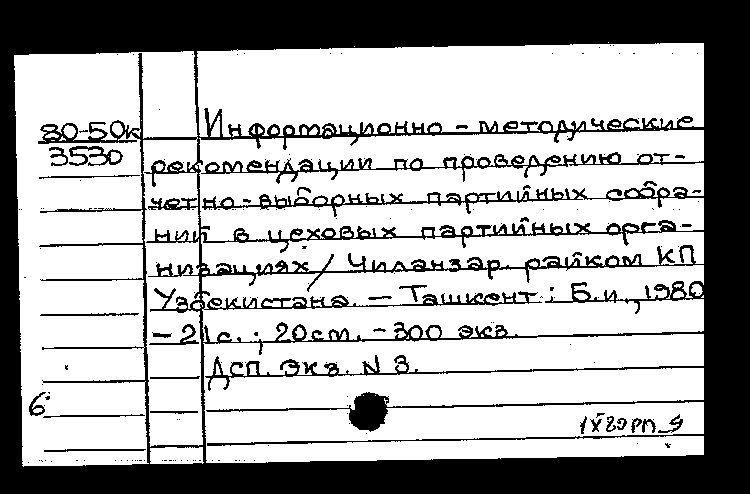 80-50к
3530
Информационно-методические
рекомендации по проведению от-
четно-выборных партийных собра-
ний в цеховых партийных орга-
низациях / Чиланзар. райком КП
Узбекистана. — Ташкент : Б.и., 1980
— 21с. ; 20см. — 300 экз.
Дсп. Экз. N 3.
6